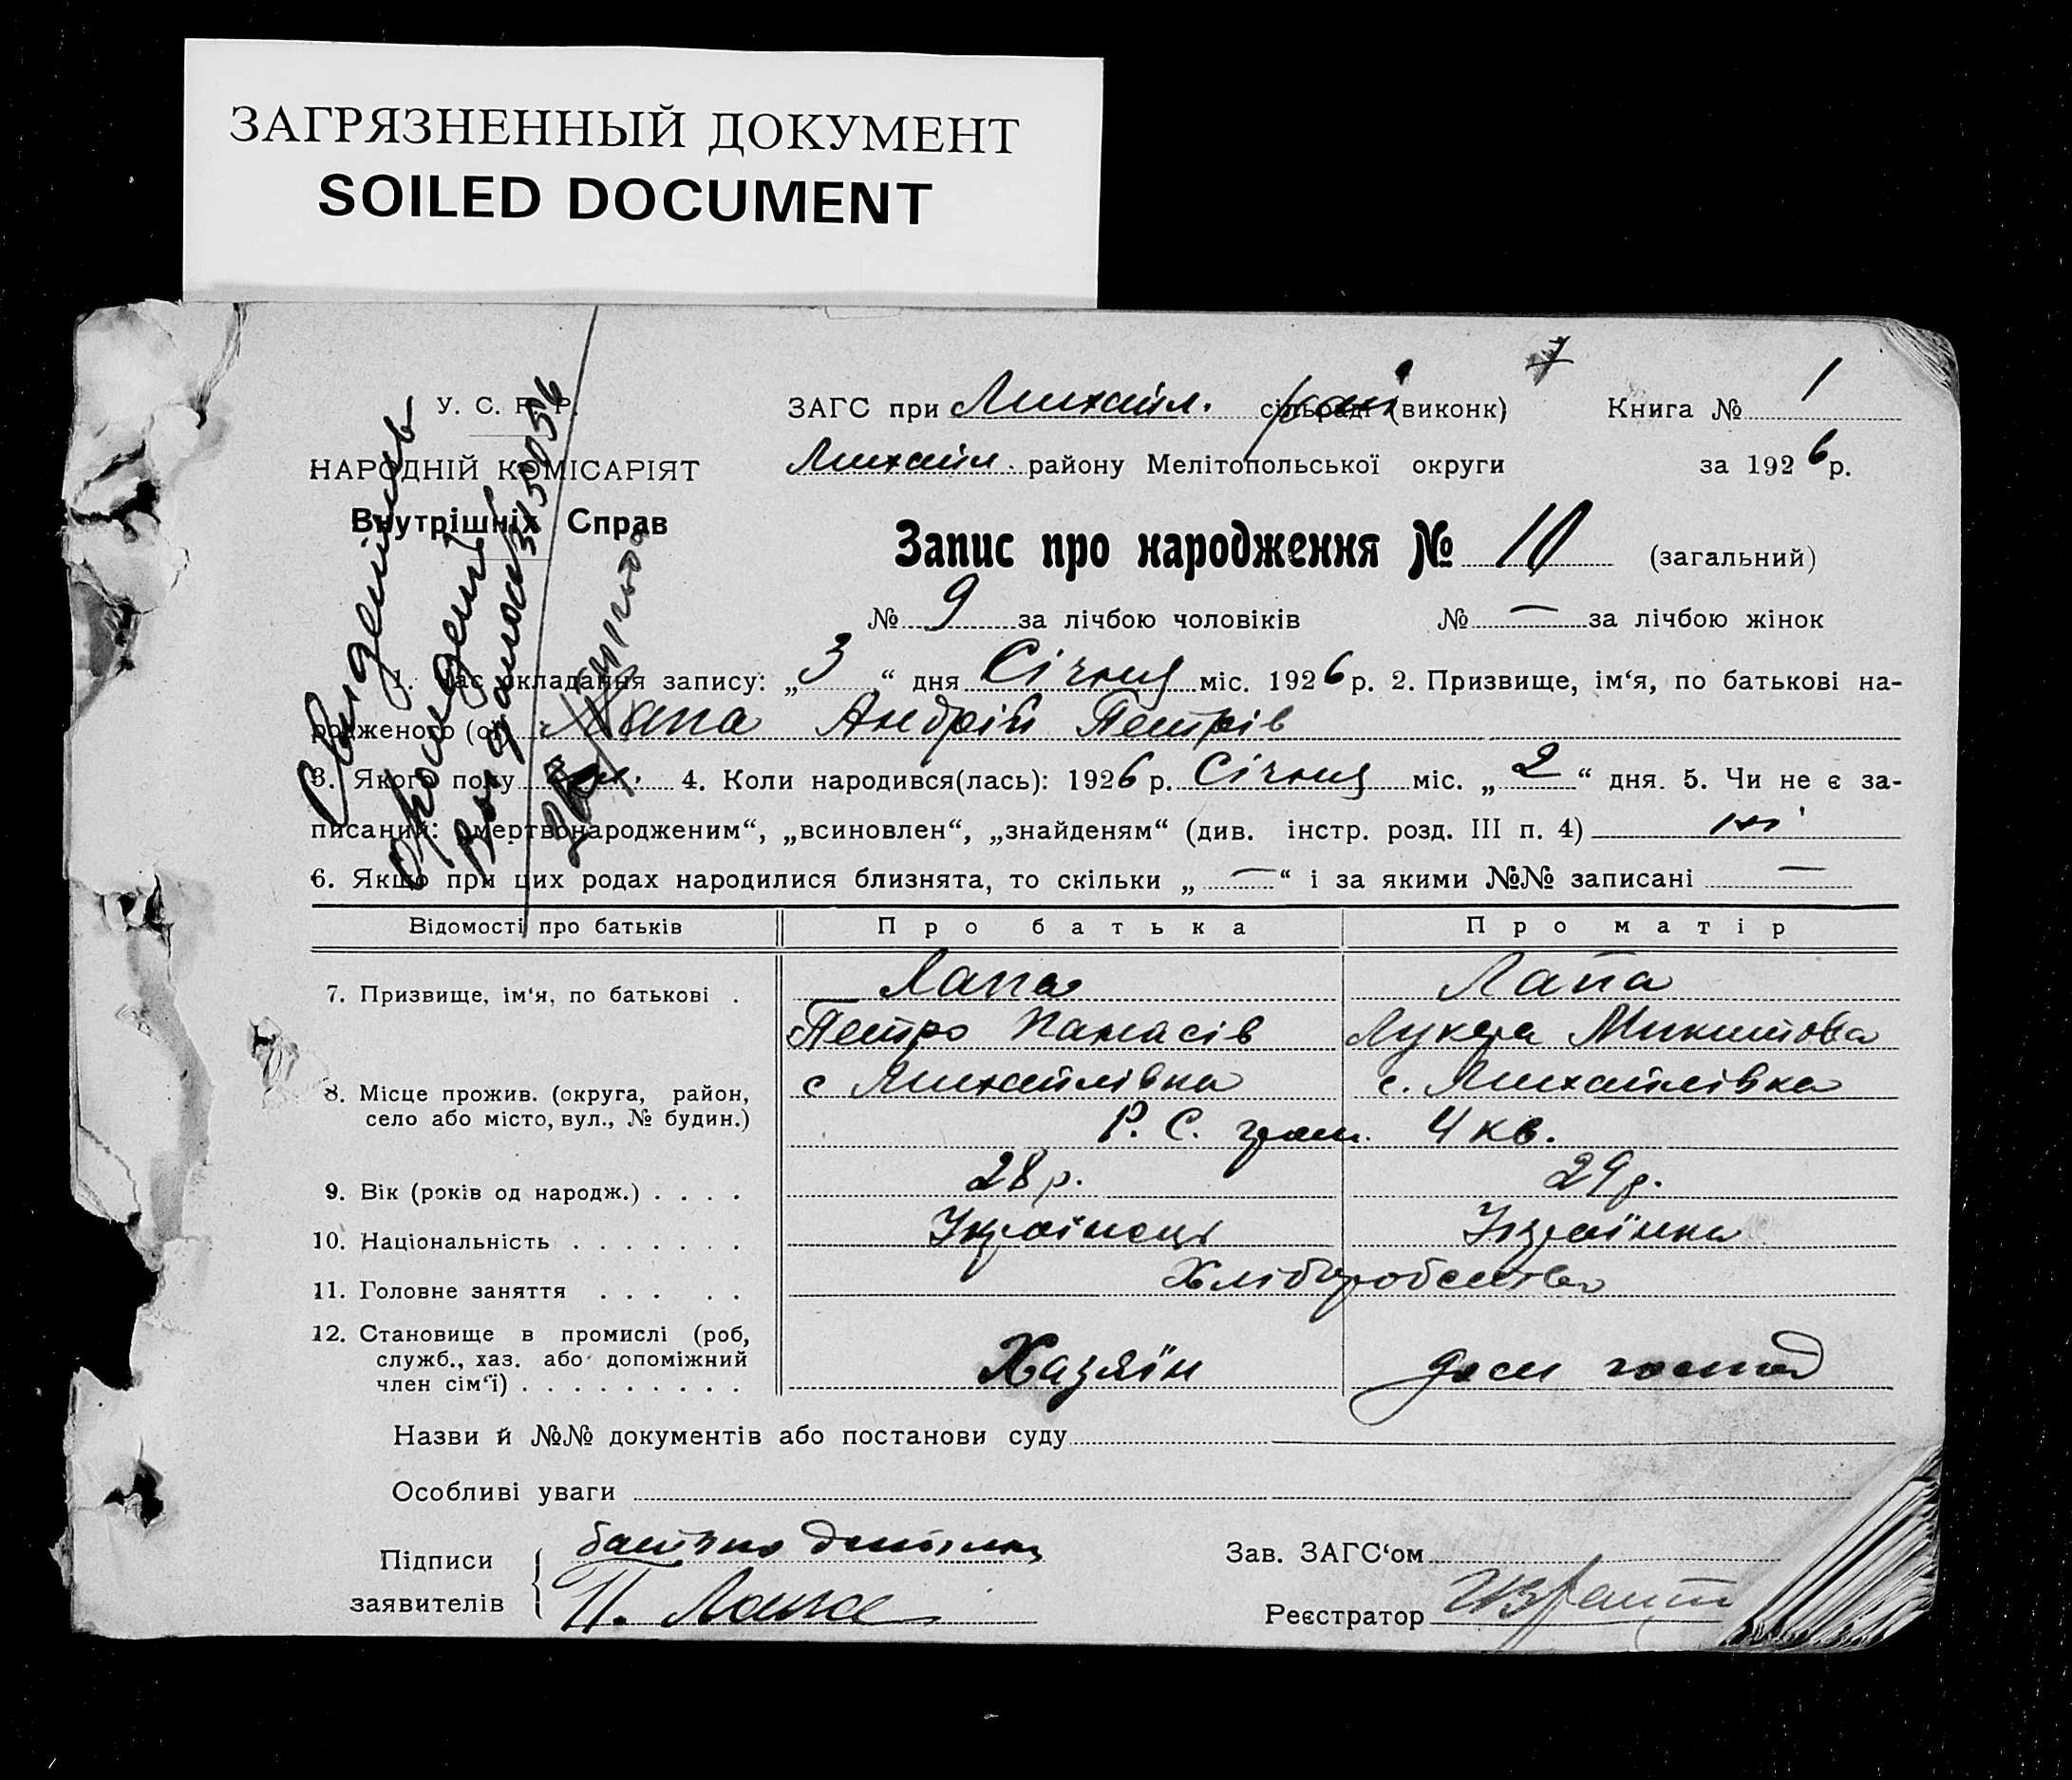 ЗАГРЯЗНЕННЫЙ ДОКУМЕНТ
SOILED DOCUMENT
7
У. С. Р. Р.
НАРОДНІЙ КОМІСАРІЯТ
Внутрішніх Справ
ЗАГС при Михайл. сільраді (виконк) Книга № 1
Михайл. району Мелітопольської округи за 1926 р.
Запис про народження № 10 (загальний)
№ 9 за лічбою чоловіків № — за лічбою жінок
1. Час складання запису: „3“ дня Січня міс. 1926 р. 2. Призвище, ім‘я, по батькові на-
родженого (ої) Лапа Андрій Петрів
3. Якого полу 4. Коли народився(лась): 1926 р. Січня міс. „2“ дня. 5. Чи не є за-
писаний: „мертвонародженим“, „всиновлен“, „знайденям“ (див. інстр. розд. III п. 4) ні
6. Якщо при цих родах народилися близнята, то скільки „—“ і за якими №№ записані —
Відомості про батьків Про батька Про матір
7. Призвище, ім‘я, по батькові . Лапа Лапа
Петро Панасів Лукера Микитова
8. Місце прожив. (округа, район, село або місто, вул., № будин.) с Михайлівка с. Михайлівка
Р. С. гром. 4 кв.
9. Вік (років од народж.) . . . . 28 р. 29 р.
10. Національність . . . . . . . Українець Українка
11. Головне заняття . . . . . Хліборобство
12. Становище в промислі (роб, служб., хаз. або допоміжний член сім‘ї) . . . . . . . . . Хазяїн дом господ
Назви й №№ документів або постанови суду
Особливі уваги
Підписи заявителів батько дитини
П. Лапа
Зав. ЗАГС‘ом
Реєстратор